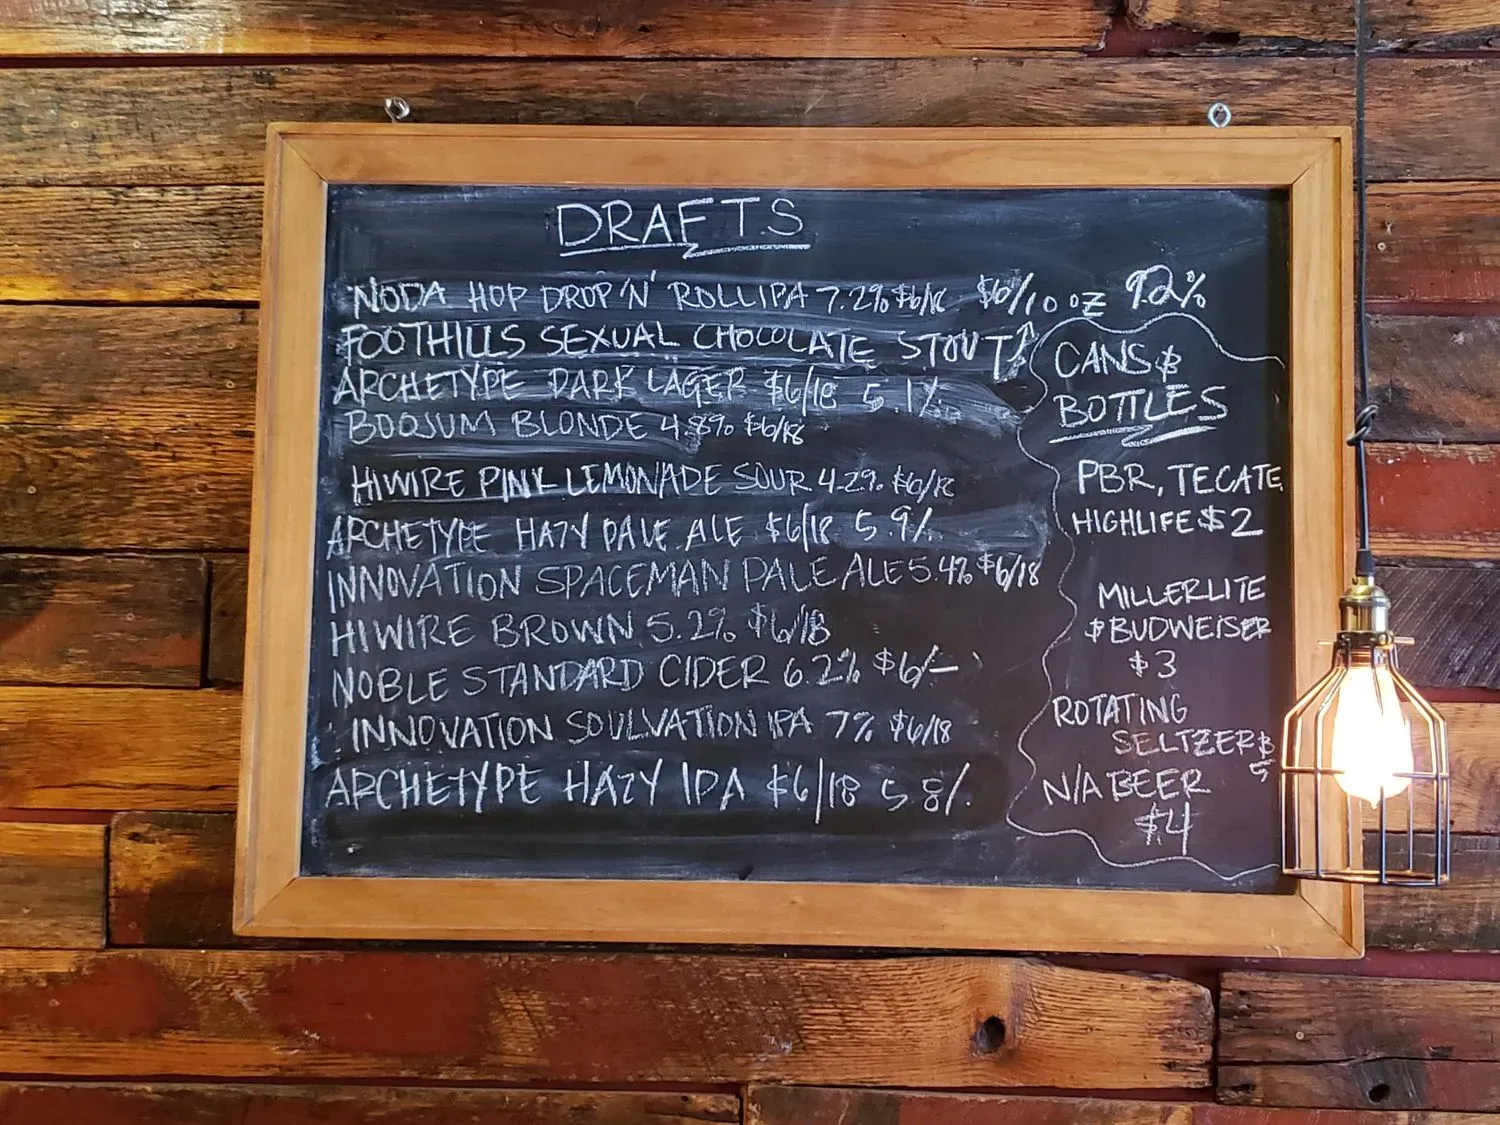 DRAFTS
NODA HOP DROP 'N' ROLL IPA 7.2% $6/18
$6/10 OZ 9.2%
FOOTHILLS SEXUAL CHOCOLATE STOUT
ARCHETYPE DARK LAGER $6/18 5.1%
BOOJUM BLONDE 4.8% $6/18
HIWIRE PINK LEMONADE SOUR 4.2% $6/18
ARCHETYPE HAZY PALE ALE $6/18 5.9%
INNOVATION SPACEMAN PALE ALE 5.4% $6/18
HIWIRE BROWN 5.2% $6/18
NOBLE STANDARD CIDER 6.2% $6/–
INNOVATION SOULVATION IPA 7% $6/18
ARCHETYPE HAZY IPA $6/18 5.8%
CANS &
BOTTLES
PBR, TECATE,
HIGHLIFE $2
MILLERLITE
& BUDWEISER
$3
ROTATING
SELTZER $
5
N/A BEER
$4